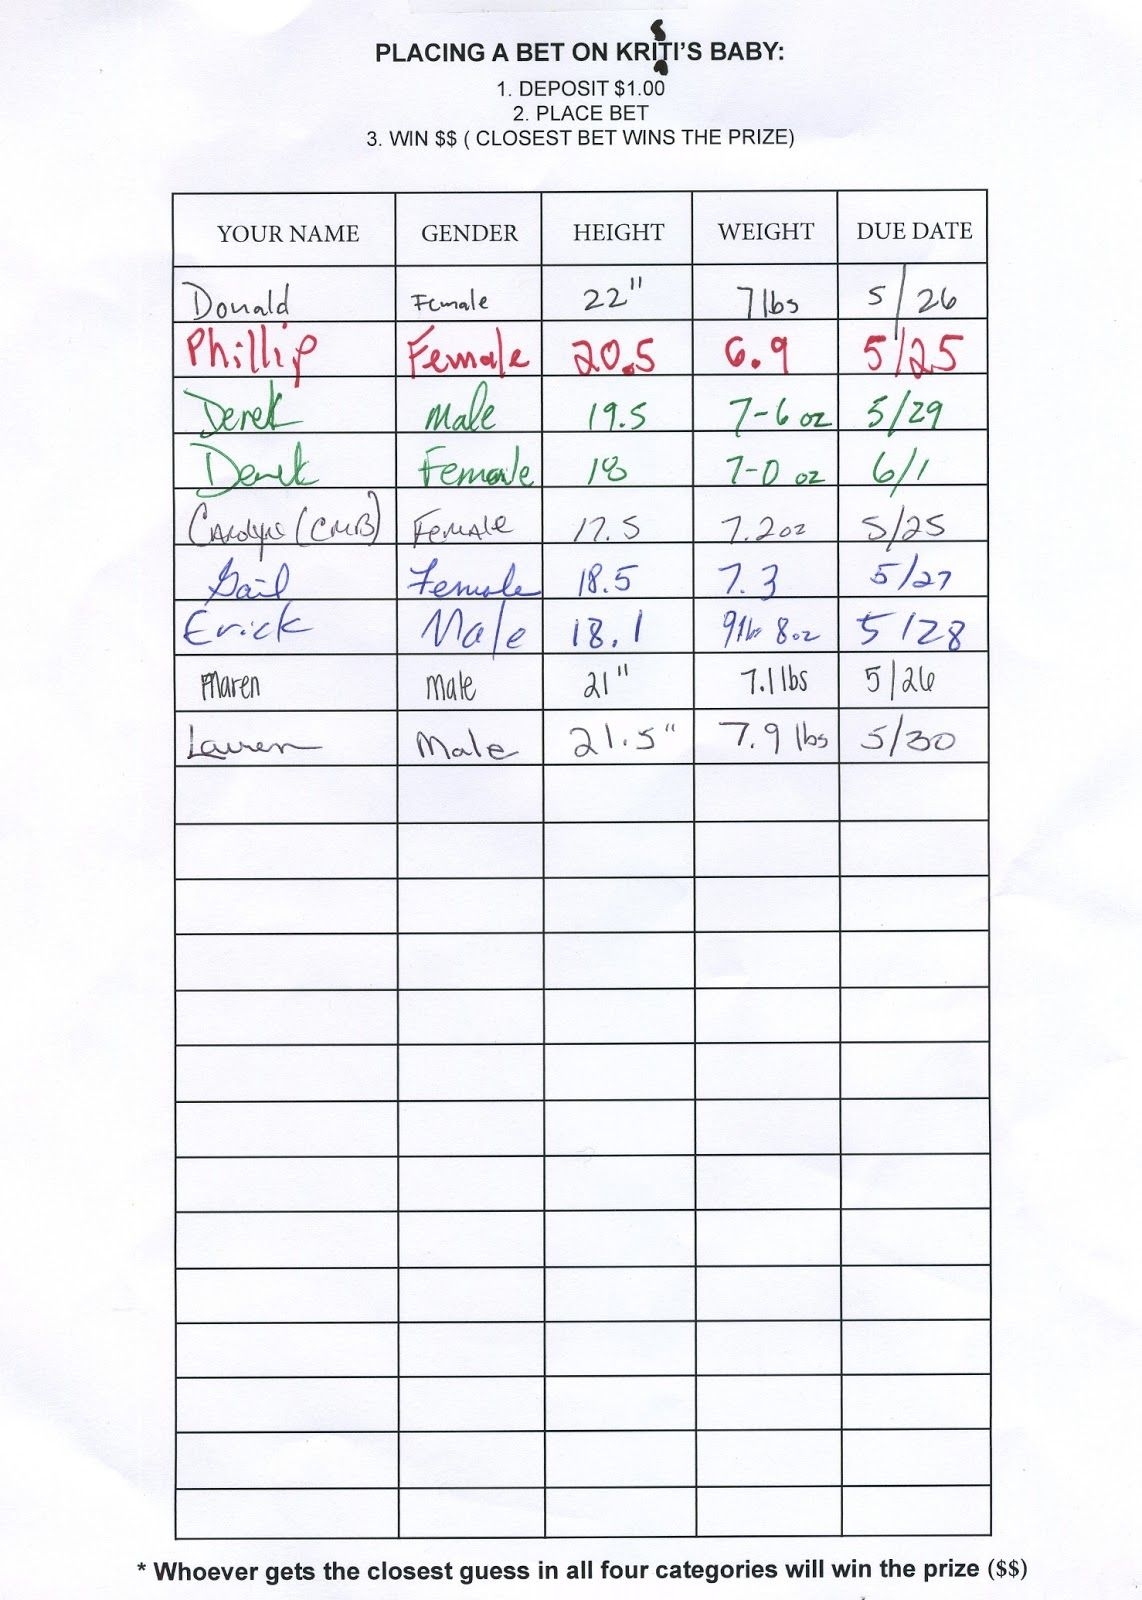 PLACING A BET ON KRISTI'S BABY:
1. DEPOSIT $1.00
2. PLACE BET
3. WIN $$ ( CLOSEST BET WINS THE PRIZE)
YOUR NAME GENDER HEIGHT WEIGHT DUE DATE
Donald Female 22" 7 lbs 5/26
Phillip Female 20.5 6.9 5/25
Derek Male 19.5 7-6 oz 5/29
Derek Female 18 7-0 oz 6/1
Carolyn (CMB) Female 17.5 7.2oz 5/25
Gail Female 18.5 7.3 5/27
Erick Male 18.1 9lbs 8oz 5/28
Maren Male 21" 7.1 lbs 5/26
Lauren Male 21.5" 7.9 lbs 5/30
* Whoever gets the closest guess in all four categories will win the prize ($$)